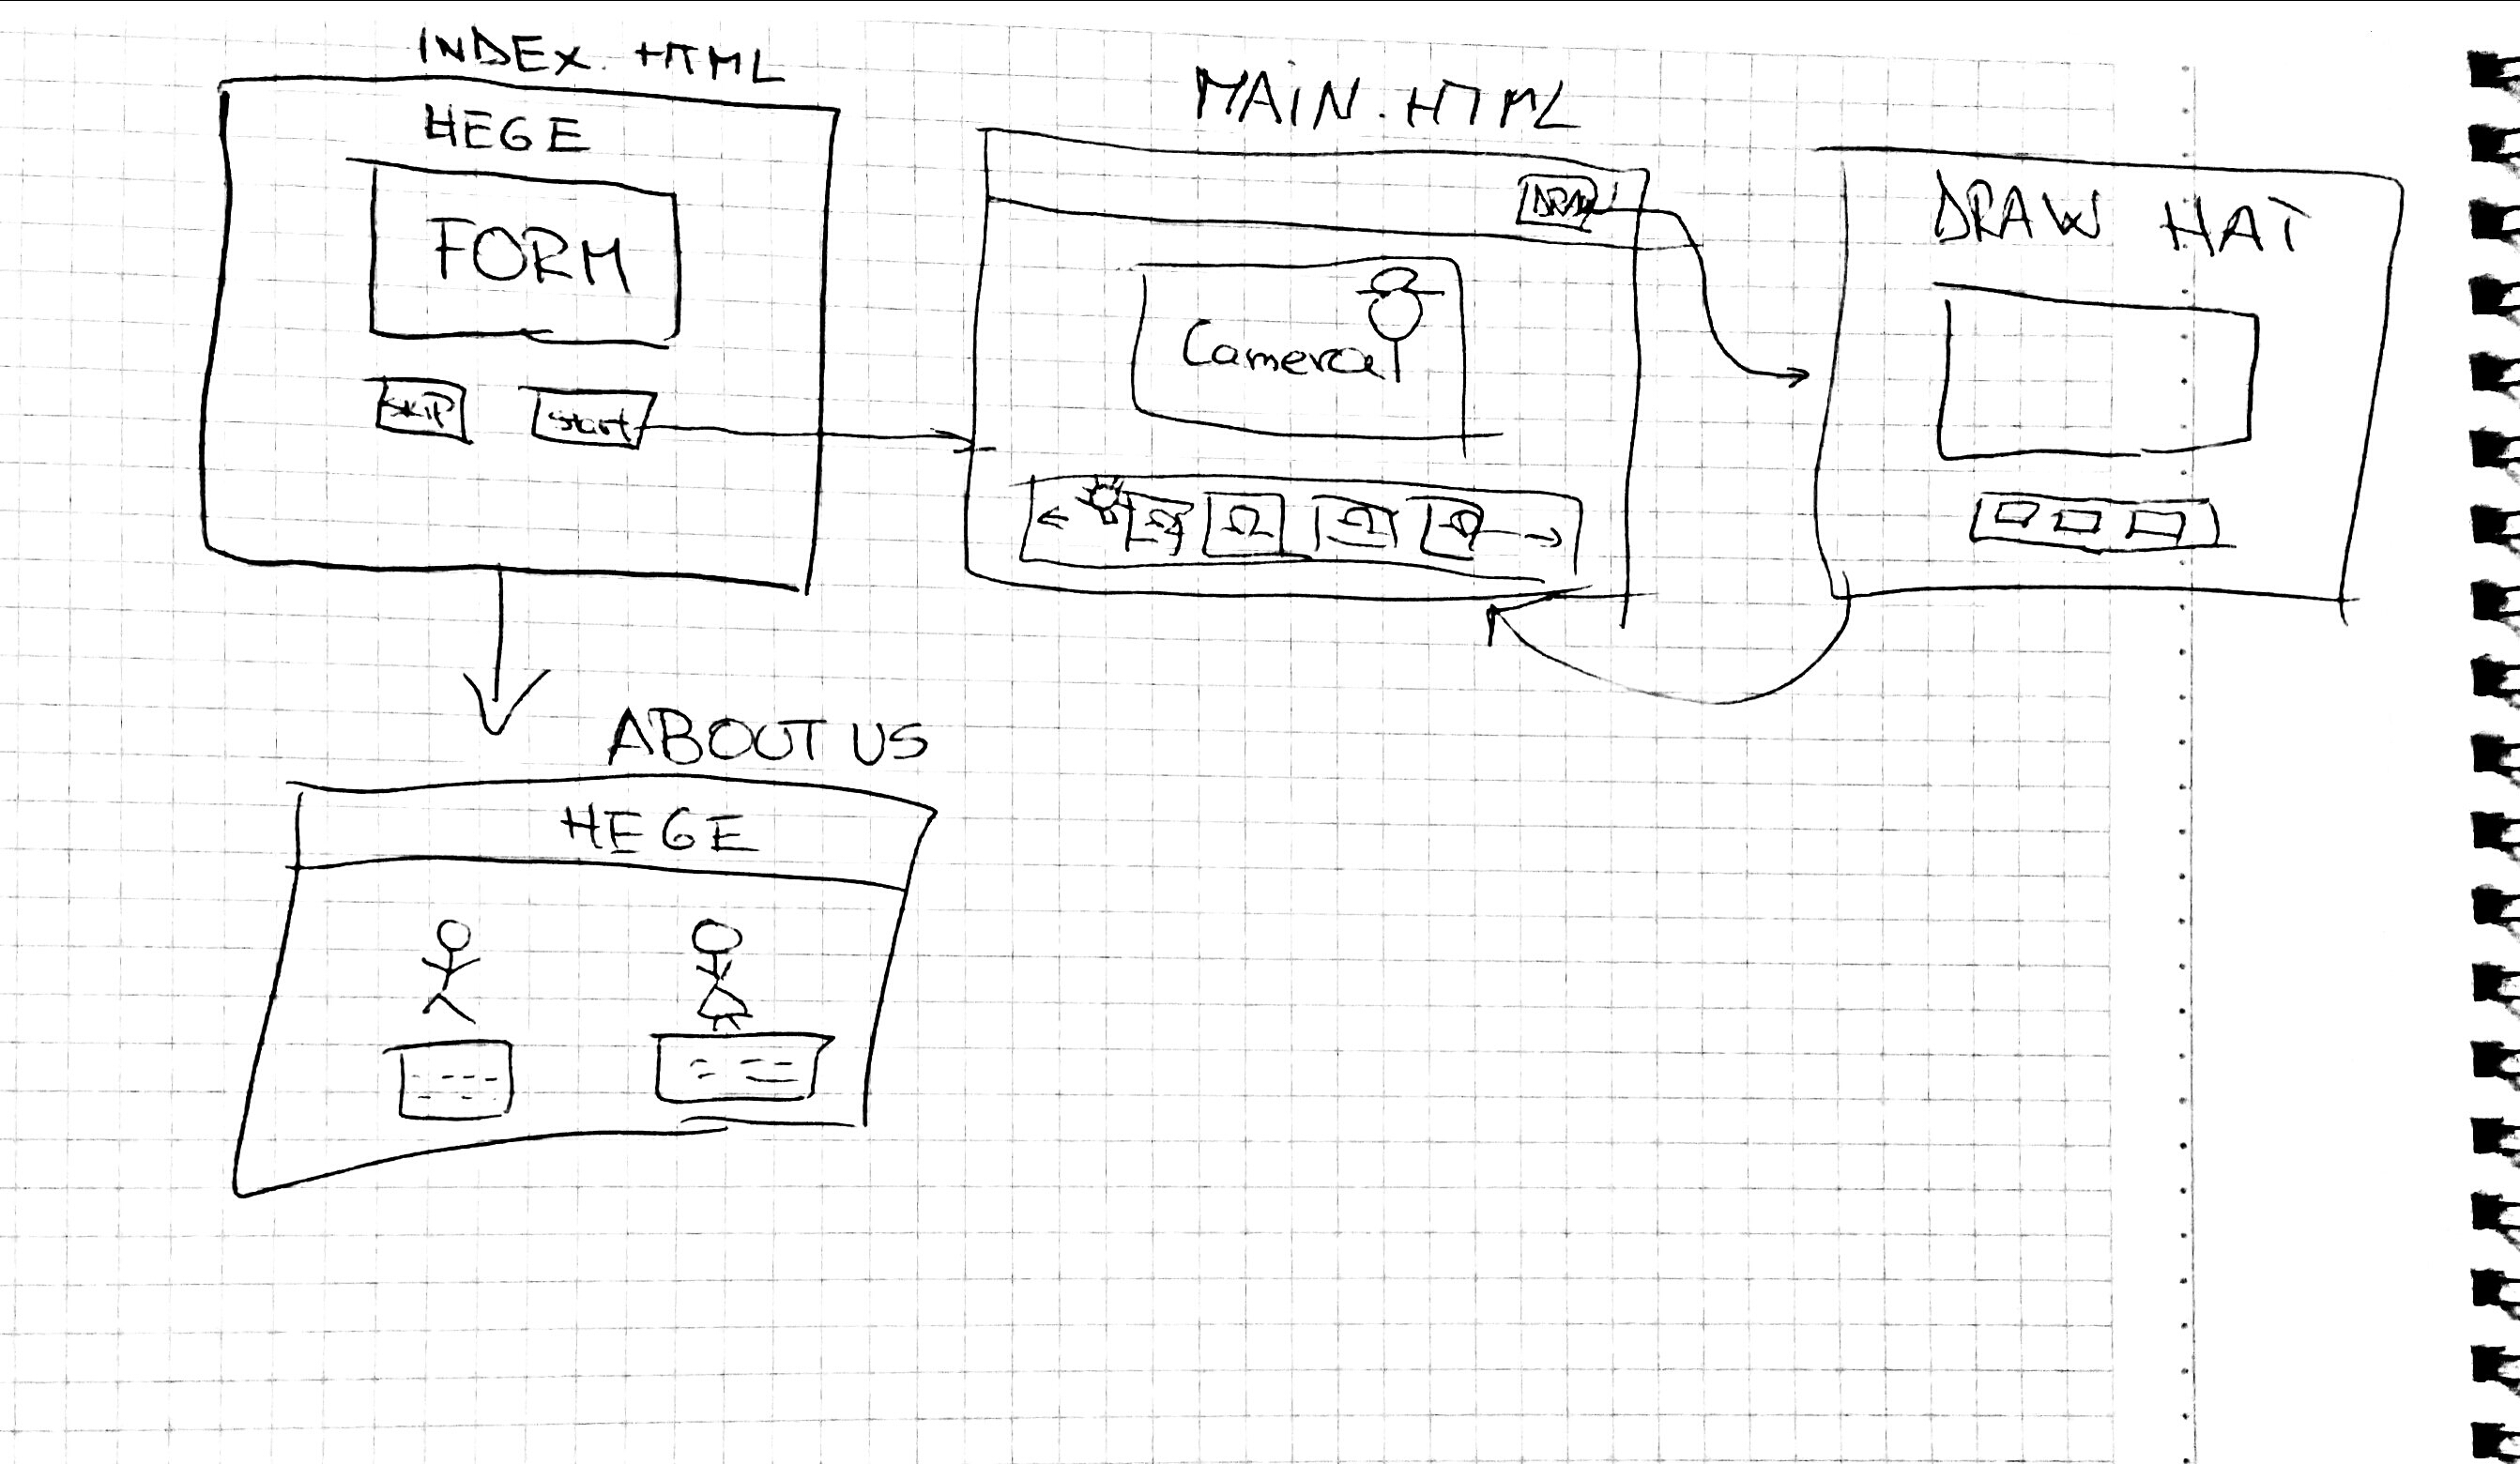 INDEX.HTML
HEGE
FORM
SKIP
start
MAIN.HTML
DRAW
Camera
DRAW HAT
ABOUT US
HEGE